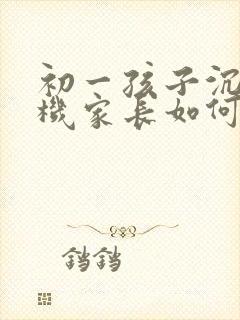 初一孩子沉
機家長如何
铛铛